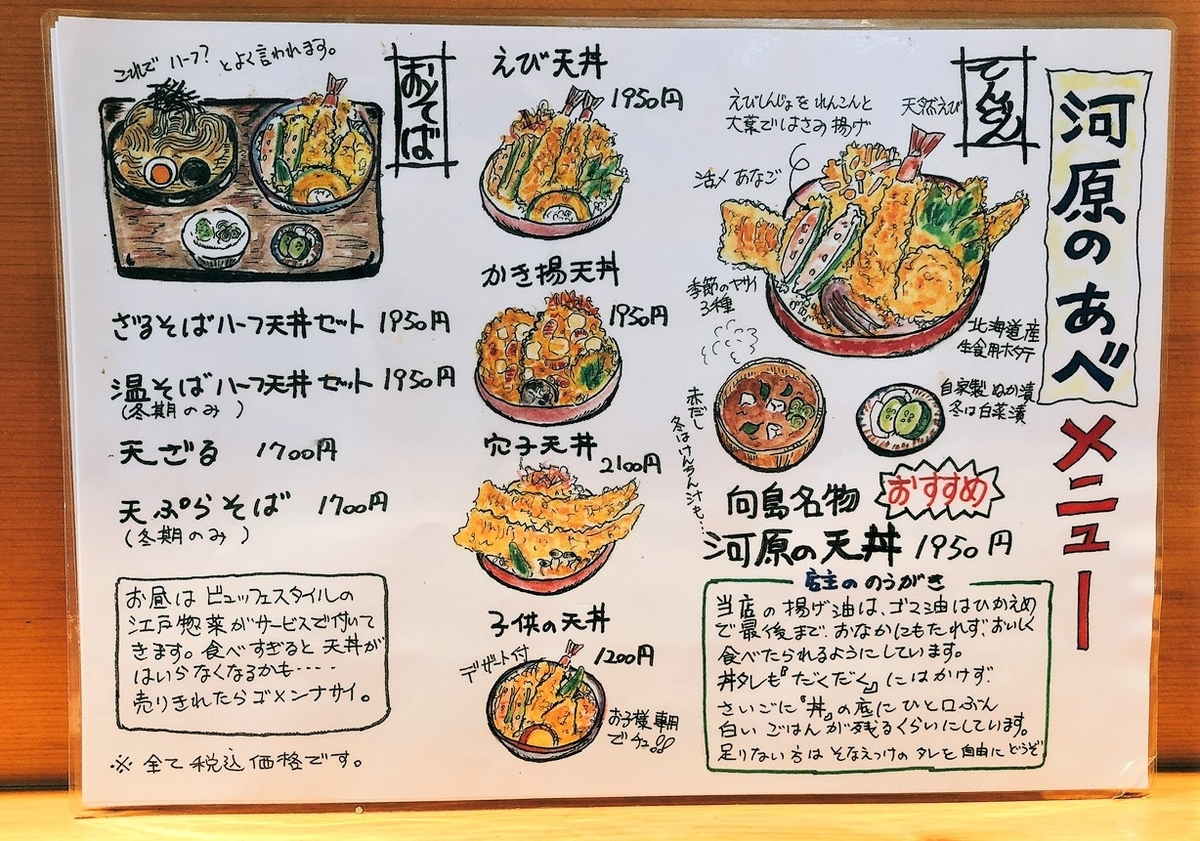 河原のあべ
メニュー
てんどん
天然えび
えびしんじょを れんこんと
大葉ではさみ揚げ
活〆 あなご
季節のヤサイ
3種
北海道産
生食用ホタテ
自家製 ぬか漬
冬は白菜漬
赤だし
冬はけんちん汁も…
向島名物
おすすめ
河原の天丼 1950円
店主の のうがき
当店の揚げ油は、ゴマ油はひかえめ
で最後まで、おなかにもたれず、おいしく
食べたられるようにしています。
丼タレも『だくだく』にはかけず、
さいごに『丼』の底にひと口ぶん
白いごはんが残るくらいにしています。
足りない方は そなえつけの タレを 自由に どうぞ
えび天丼
1950円
かき揚天丼
1950円
穴子天丼
2100円
子供の天丼
デザート付
1200円
お子様専用
でチュ!!
おそば
これで ハーフ? とよく言われます。
ざるそばハーフ天丼セット 1950円
温そばハーフ天丼セット 1950円
(冬期のみ)
天ざる 1700円
天ぷらそば 1700円
(冬期のみ)
お昼は ビュッフェスタイルの
江戸惣菜がサービスで付いて
きます。食べすぎると 天丼が
はいらなくなるかも‥‥
売りきれたらゴメンナサイ。
※ 全て税込価格です。